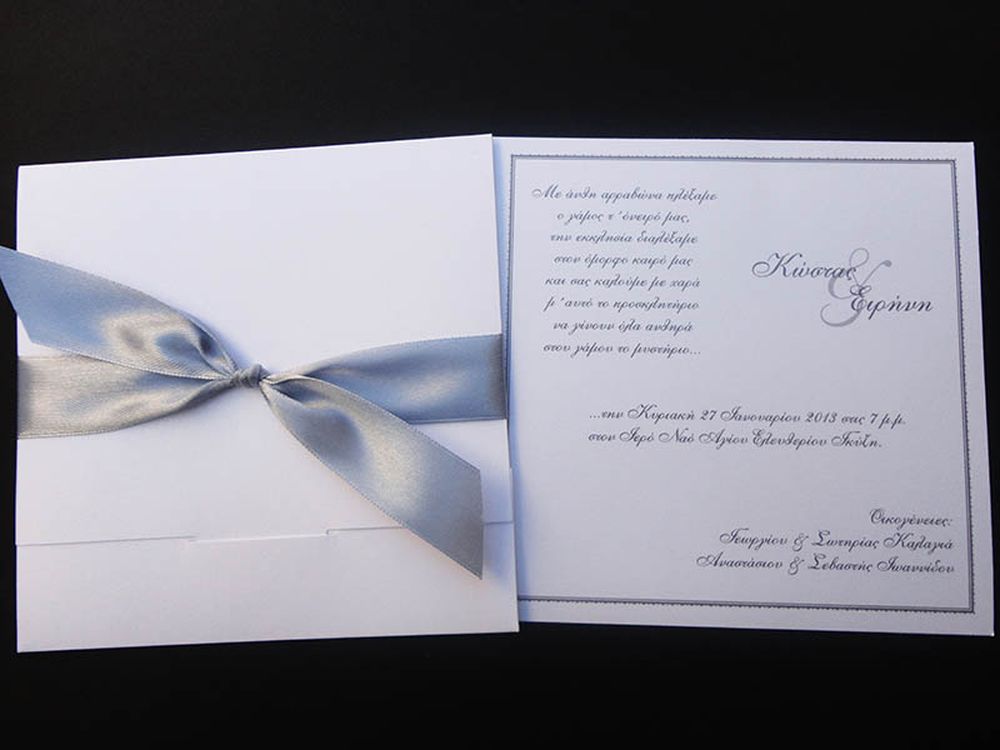 Με άνθη αρραβώνα πλέξαμε
ο γάμος τ' όνειρό μας,
την εκκλησία διαλέξαμε
στον όμορφο καιρό μας
και σας καλούμε με χαρά
μ' αυτό το προσκλητήριο
να γίνουν όλα ανθηρά
στου γάμου το μυστήριο...
Κώστας
&
Ειρήνη
...την Κυριακή 27 Ιανουαρίου 2013 στις 7 μ.μ.
στον Ιερό Ναό Αγίου Ελευθερίου Γκύζη.
Οικογένειες:
Γεωργίου & Σωτηρίας Καλαγιά
Αναστάσιου & Σεβαστής Ιωαννίδου